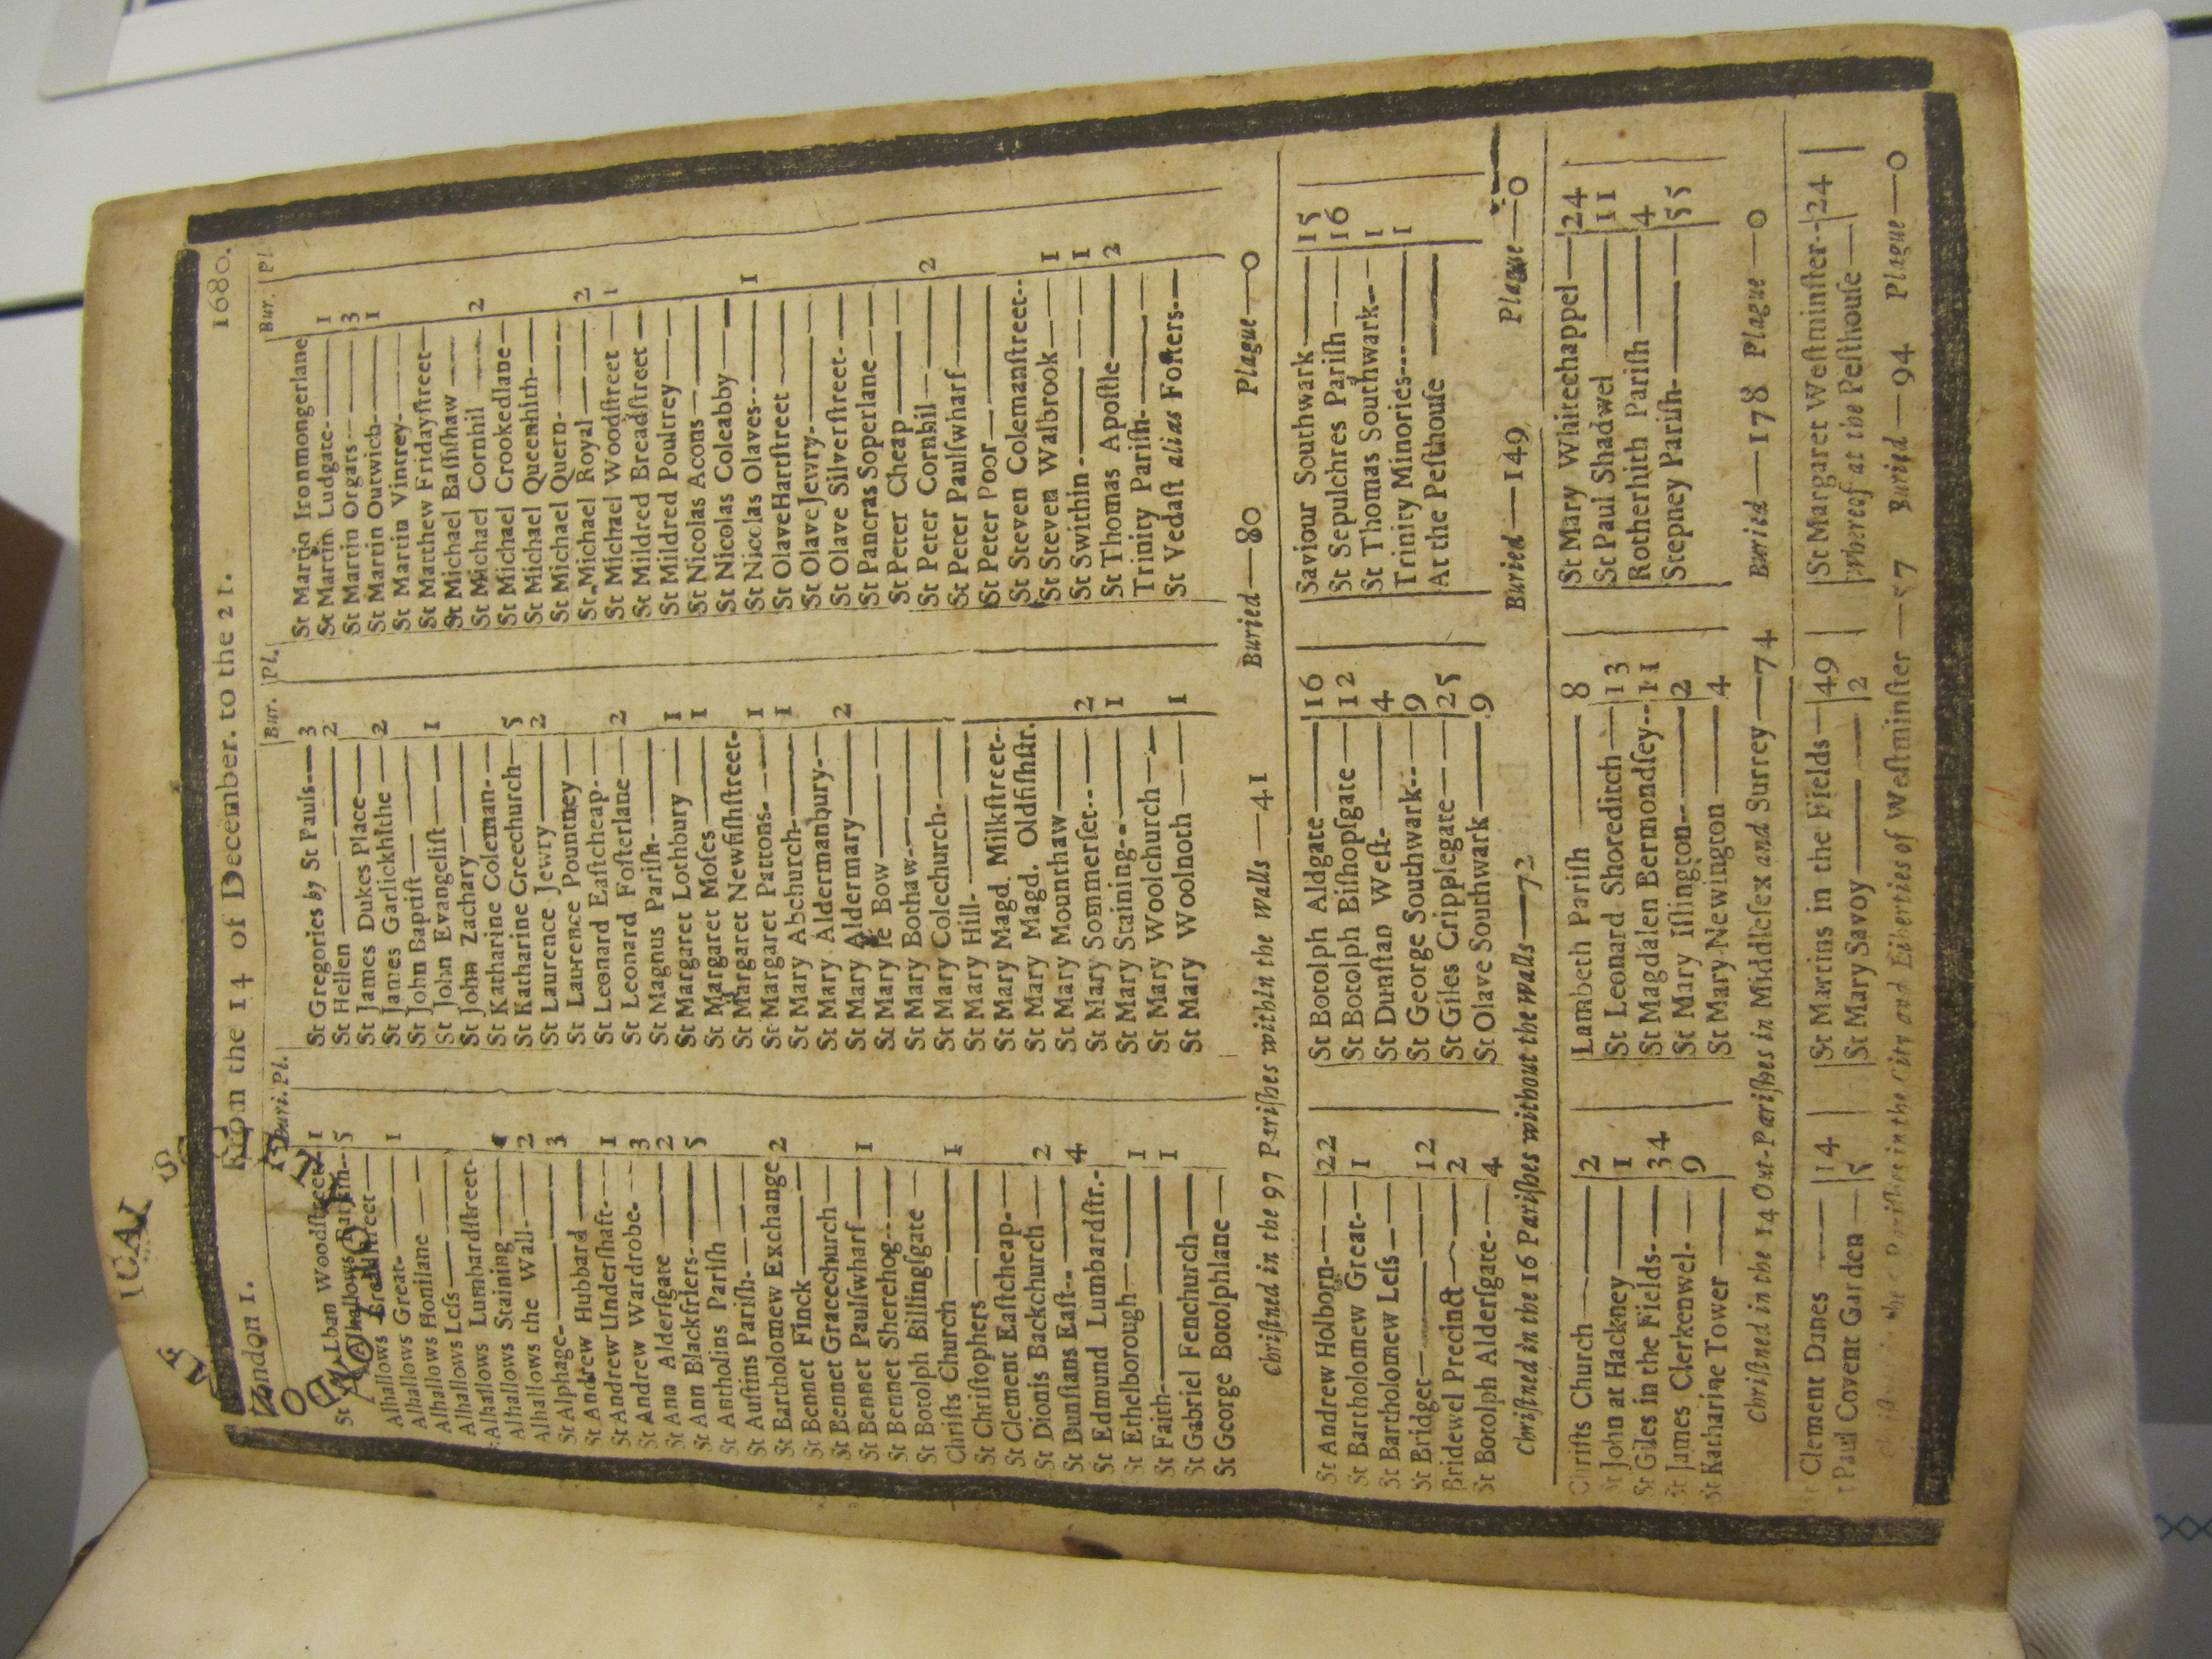 London 1. From the 14 of December. to the 21. 1680.
Buri. Pl.
St Alban Woodſtreet 1
Alhallows Barkin-- 5
Alhallows Breadſtreet —
Alhallows Great- — 1
Alhallows Honilane —
Alhallows Leſs —
Alhallows Lumbardſtreet-
Alhallows Staining —
Alhallows the Wall- — 2
St Alphage- — 3
St Andrew Hubbard —
St Andrew Underſhaft- — 1
St Andrew Wardrobe- — 3
St Ann Alderſgate — 2
St Ann Blackfriers- — 5
St Antholins Pariſh —
St Auſtins Pariſh- —
St Bartholomew Exchange 2
St Bennet Finck —
St Bennet Gracechurch —
St Bennet Paulſwharf — 1
St Bennet Sherehog- —
St Botolph Billingſgate —
Chriſts Church — 1
St Chriſtophers —
St Clement Eaſtcheap- —
St Dionis Backchurch — 2
St Dunſtans Eaſt-- — 4
St Edmund Lumbardſtr.-
St Ethelborough — 1
St Faith- — 1
St Gabriel Fenchurch —
St George Botolphlane —
Bur. Pl.
St Gregories by St Pauls — 3
St Hellen — 2
St James Dukes Place —
St James Garlickhithe — 2
St John Baptiſt —
St John Evangeliſt — 1
St John Zachary —
St Katharine Coleman- —
St Katharine Creechurch — 5
St Laurence Jewry — 2
St Laurence Pountney —
St Leonard Eaſtcheap- —
St Leonard Foſterlane — 2
St Magnus Pariſh- —
St Margaret Lothbury — 1
St Margaret Moſes — 1
St Margaret Newfiſhſtreet-
St Margaret Pattons- — 1
St Mary Abchurch- — 1
St Mary Aldermanbury- —
St Mary Aldermary — 2
St Mary le Bow —
St Mary Bothaw- —
St Mary Colechurch- —
St Mary Hill- —
St Mary Magd. Milkſtreet--
St Mary Magd. Oldfiſhſtr.
St Mary Mounthaw —
St Mary Sommerſet-- — 2
St Mary Staining- — 1
St Mary Woolchurch —
St Mary Woolnoth — 1
Bur. Pl
St Martin Ironmongerlane
St Martin Ludgate- — 1
St Martin Orgars — 3
St Martin Outwich- — 1
St Martin Vintrey- —
St Matthew Fridayſtreet —
St Michael Baſſiſhaw —
St Michael Cornhil — 2
St Michael Crookedlane —
St Michael Queenhith —
St Michael Quern- —
St Michael Royal — 2
St Michael Woodſtreet — 1
St Mildred Breadſtreet —
St Mildred Poultrey —
St Nicolas Acons —
St Nicolas Coleabby —
St Nicolas Olaves-- — 1
St Olave Hartſtreet —
St Olave Jewry- —
St Olave Silverſtreet- —
St Pancras Soperlane —
St Peter Cheap —
St Peter Cornhil — 2
St Peter Paulſwharf —
St Peter Poor —
St Steven Colemanſtreet--
St Steven Walbrook — 1
St Swithin - — 1
St Thomas Apoſtle — 2
Trinity Pariſh- —
St Vedaſt alias Foſters —
Chriſtned in the 97 Pariſhes within the Walls — 41 Buried — 80 Plague — 0
St Andrew Holborn- — 22
St Bartholomew Great- — 1
St Bartholomew Leſs —
St Bridget — 12
Bridewel Precinct — 2
St Botolph Alderſgate- — 4
St Botolph Aldgate — 16
St Botolph Biſhopſgate — 12
St Dunſtan Weſt- — 4
St George Southwark-- — 9
St Giles Cripplegate — 25
St Olave Southwark — 9
Saviour Southwark — 15
St Sepulchres Pariſh — 16
St Thomas Southwark-- 1
Trinity Minories--- — 1
At the Peſthouſe —
Chriſtned in the 16 Pariſhes without the Walls — 72 Buried — 149 Plague — 0
Chriſts Church — 2
St John at Hackney — 1
St Giles in the Fields- — 34
St James Clerkenwel- — 9
St Katharine Tower —
Lambeth Pariſh — 8
St Leonard Shoreditch — 13
St Magdalen Bermondſey-- 11
St Mary Iſlington-- — 2
St Mary Newington — 4
St Mary Whitechappel — 24
St Paul Shadwel — 11
Rotherhith Pariſh — 4
Stepney Pariſh- — 55
Chriſtned in the 14 Out-Pariſhes in Middleſex and Surrey — 74 Buried — 178 Plague — 0
St Clement Danes — 14
St Paul Covent Garden — 5
St Martins in the Fields — 49
St Mary Savoy — 2
St Margaret Weſtminſter-- 24
whereof at the Peſthouſe —
Pariſhes in the City and Liberties of Weſtminſter — 57 Buried — 94 Plague — 0